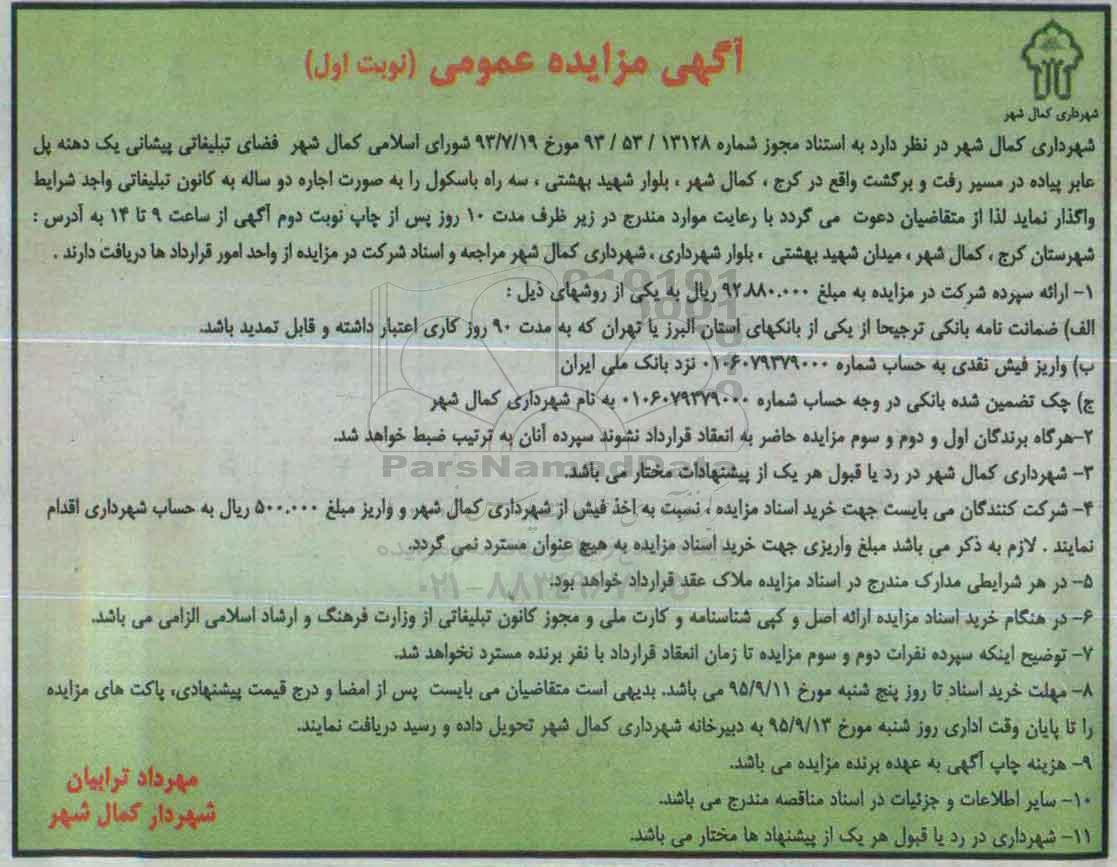 آگهی مزایده عمومی (نوبت اول)
شهرداری کمال شهر
شهرداری کمال شهر در نظر دارد به استناد مجوز شماره ۱۳۱۲۸ / ۵۳ / ۹۳ مورخ ۹۳/۷/۱۹ شورای اسلامی کمال شهر فضای تبلیغاتی پیشانی یک دهنه پل
عابر پیاده در مسیر رفت و برگشت واقع در کرج ، کمال شهر ، بلوار شهید بهشتی ، سه راه باسکول را به صورت اجاره دو ساله به کانون تبلیغاتی واجد شرایط
واگذار نماید لذا از متقاضیان دعوت می گردد با رعایت موارد مندرج در زیر ظرف مدت ۱۰ روز پس از چاپ نوبت دوم آگهی از ساعت ۹ تا ۱۴ به آدرس :
شهرستان کرج ، کمال شهر ، میدان شهید بهشتی ، بلوار شهرداری ، شهرداری کمال شهر مراجعه و اسناد شرکت در مزایده از واحد امور قرارداد ها دریافت دارند .
۱- ارائه سپرده شرکت در مزایده به مبلغ ۹۲.۸۸۰.۰۰۰ ریال به یکی از روشهای ذیل :
الف) ضمانت نامه بانکی ترجیحا از یکی از بانکهای استان البرز یا تهران که به مدت ۹۰ روز کاری اعتبار داشته و قابل تمدید باشد.
ب) واریز فیش نقدی به حساب شماره ۰۱۰۶۰۷۹۳۷۹۰۰۰ نزد بانک ملی ایران
ج) چک تضمین شده بانکی در وجه حساب شماره ۰۱۰۶۰۷۹۳۷۹۰۰۰ به نام شهرداری کمال شهر
۲-هرگاه برندگان اول و دوم و سوم مزایده حاضر به انعقاد قرارداد نشوند سپرده آنان به ترتیب ضبط خواهد شد.
ParsNamadData
۳- شهرداری کمال شهر در رد یا قبول هر یک از پیشنهادات مختار می باشد.
۴- شرکت کنندگان می بایست جهت خرید اسناد مزایده ، نسبت به اخذ فیش از شهرداری کمال شهر و واریز مبلغ ۵۰۰.۰۰۰ ریال به حساب شهرداری اقدام
نمایند . لازم به ذکر می باشد مبلغ واریزی جهت خرید اسناد مزایده به هیچ عنوان مسترد نمی گردد.
۵- در هر شرایطی مدارک مندرج در اسناد مزایده ملاک عقد قرارداد خواهد بود.
۶- در هنگام خرید اسناد مزایده ارائه اصل و کپی شناسنامه و کارت ملی و مجوز کانون تبلیغاتی از وزارت فرهنگ و ارشاد اسلامی الزامی می باشد.
۷- توضیح اینکه سپرده نفرات دوم و سوم مزایده تا زمان انعقاد قرارداد با نفر برنده مسترد نخواهد شد.
۸- مهلت خرید اسناد تا روز پنج شنبه مورخ ۹۵/۹/۱۱ می باشد. بدیهی است متقاضیان می بایست پس از امضا و درج قیمت پیشنهادی، پاکت های مزایده
را تا پایان وقت اداری روز شنبه مورخ ۹۵/۹/۱۳ به دبیرخانه شهرداری کمال شهر تحویل داده و رسید دریافت نمایند.
۹- هزینه چاپ آگهی به عهده برنده مزایده می باشد.
۱۰- سایر اطلاعات و جزئیات در اسناد مناقصه مندرج می باشد.
۱۱- شهرداری در رد یا قبول هر یک از پیشنهاد ها مختار می باشد.
مهرداد ترابیان
شهردار کمال شهر